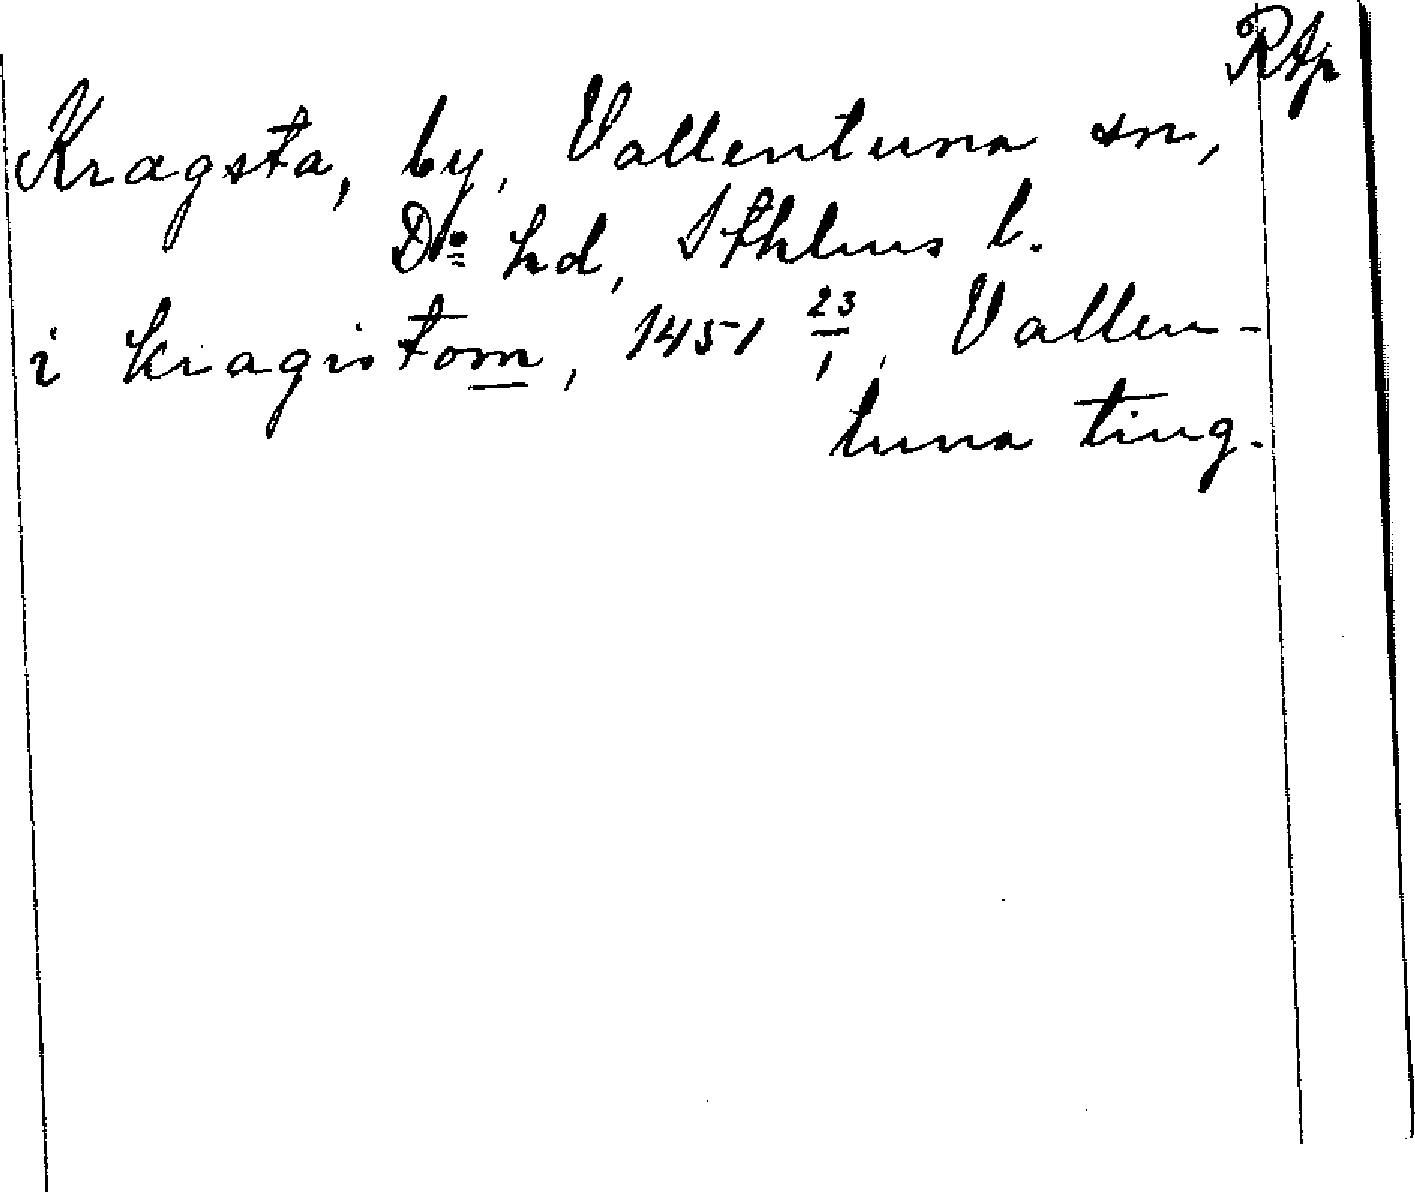 RAp
Kragsta, by, Vallentuna sn,
Do hd, Sthlms l.
i kragistom, 1451 23/1, Vallen-
tuna ting.